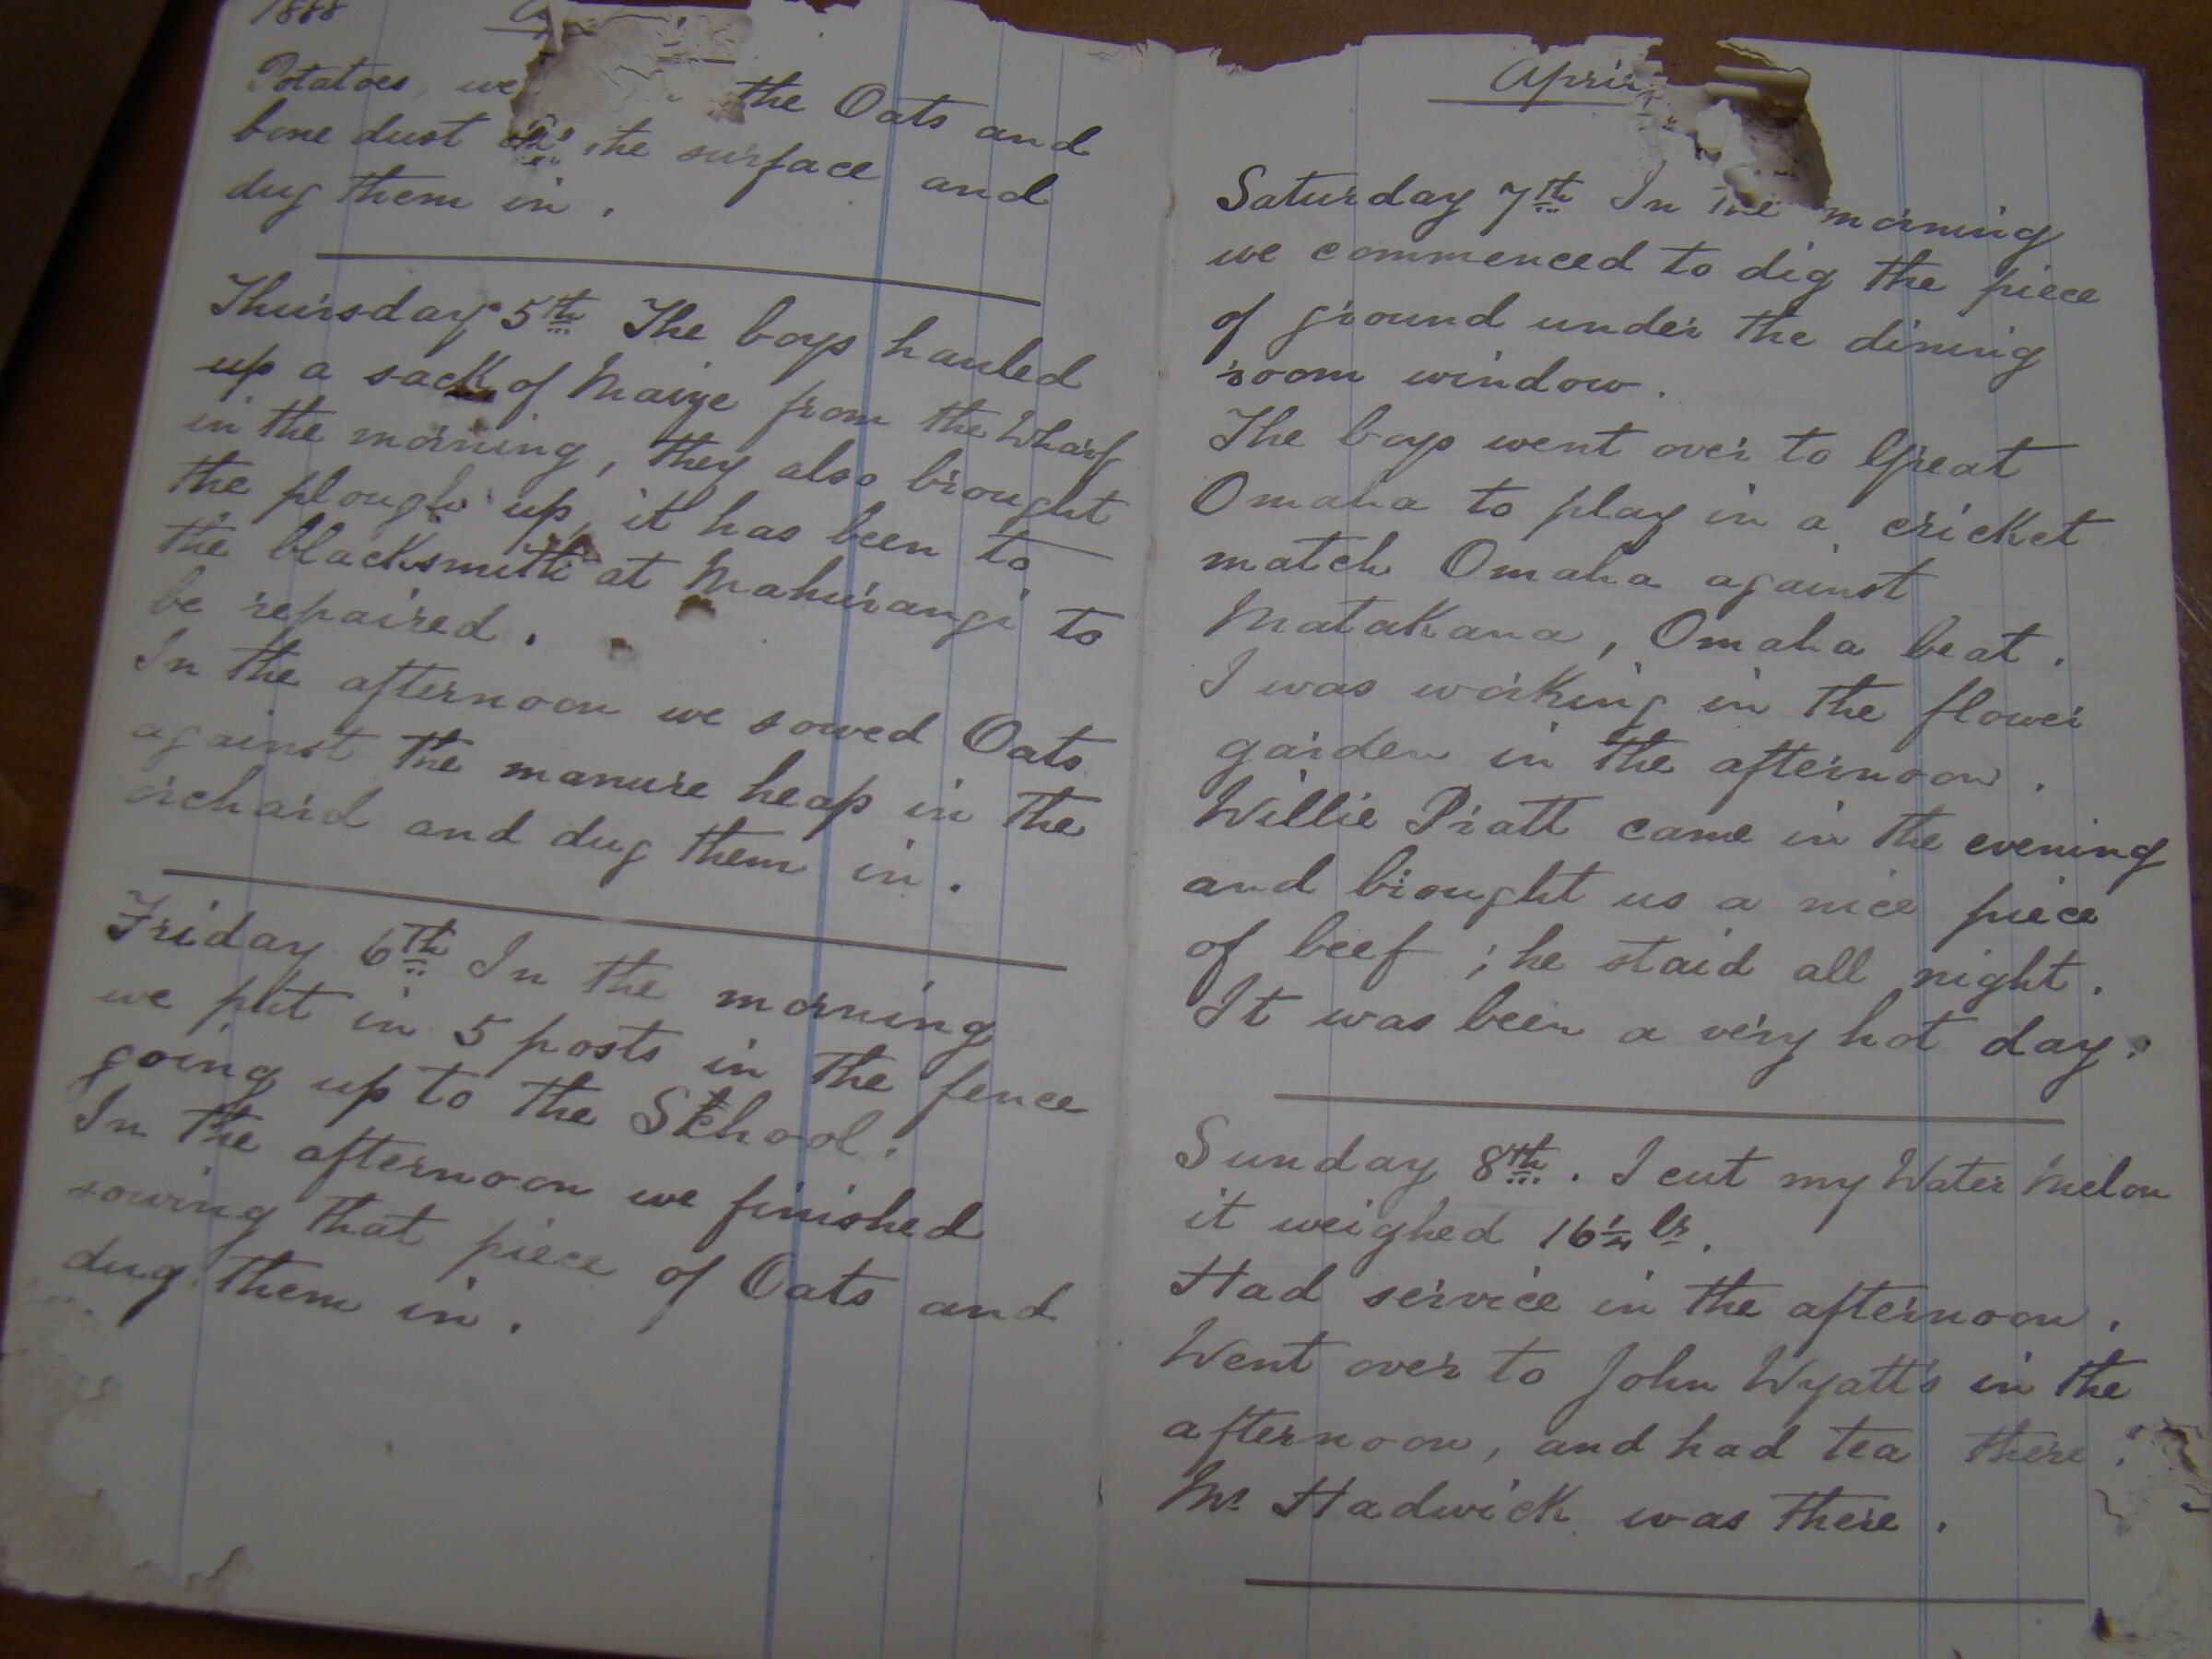 1888
Potatoes, we the Oats and
bone dust on the surface and
dug them in.
Thursday 5th The boys hauled
up a sack of Maize from the Wharf
in the morning, they also brought
the plough up, it has been to
the blacksmith at Mahurangi to
be repaired.
In the afternoon we sowed Oats
against the manure heap in the
orchard and dug them in.
Friday 6th In the morning
we put in 5 posts in the fence
going up to the School.
In the afternoon we finished
sowing that piece of Oats and
dug them in.
April
Saturday 7th In the morning
we commenced to dig the piece
of ground under the dining
room window.
The boys went over to Great
Omaha to play in a cricket
match Omaha against
Matakana, Omaha beat.
I was working in the flower
garden in the afternoon.
Willie Pratt came in the evening
and brought us a nice piece
of beef ; he staid all night.
It was been a very hot day.
Sunday 8th. I cut my Water Melon
it weighed 16 1/4 lb.
Had service in the afternoon.
Went over to John Wyatt's in the
afternoon, and had tea there.
Mr Hadwick was there.